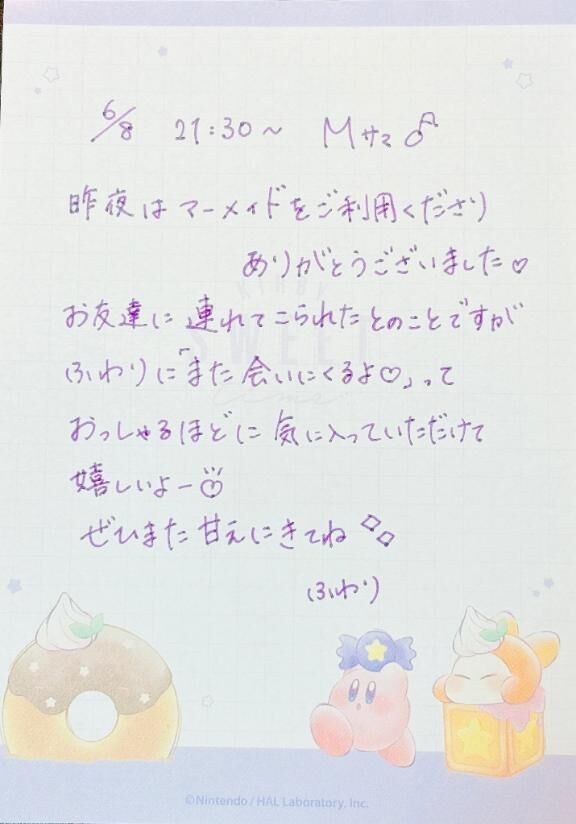 6/8 21:30～ Mサマ
昨夜はマーメイドをご利用くださり
ありがとうございました♡
お友達に連れてこられたとのことですが
ふわりに「また会いにくるよ♡」って
おっしゃるほどに気に入っていただけて
嬉しいよー
ぜひまた甘えにきてね
ふわり
KIRBY
SWEET
time
©Nintendo / HAL Laboratory, Inc.